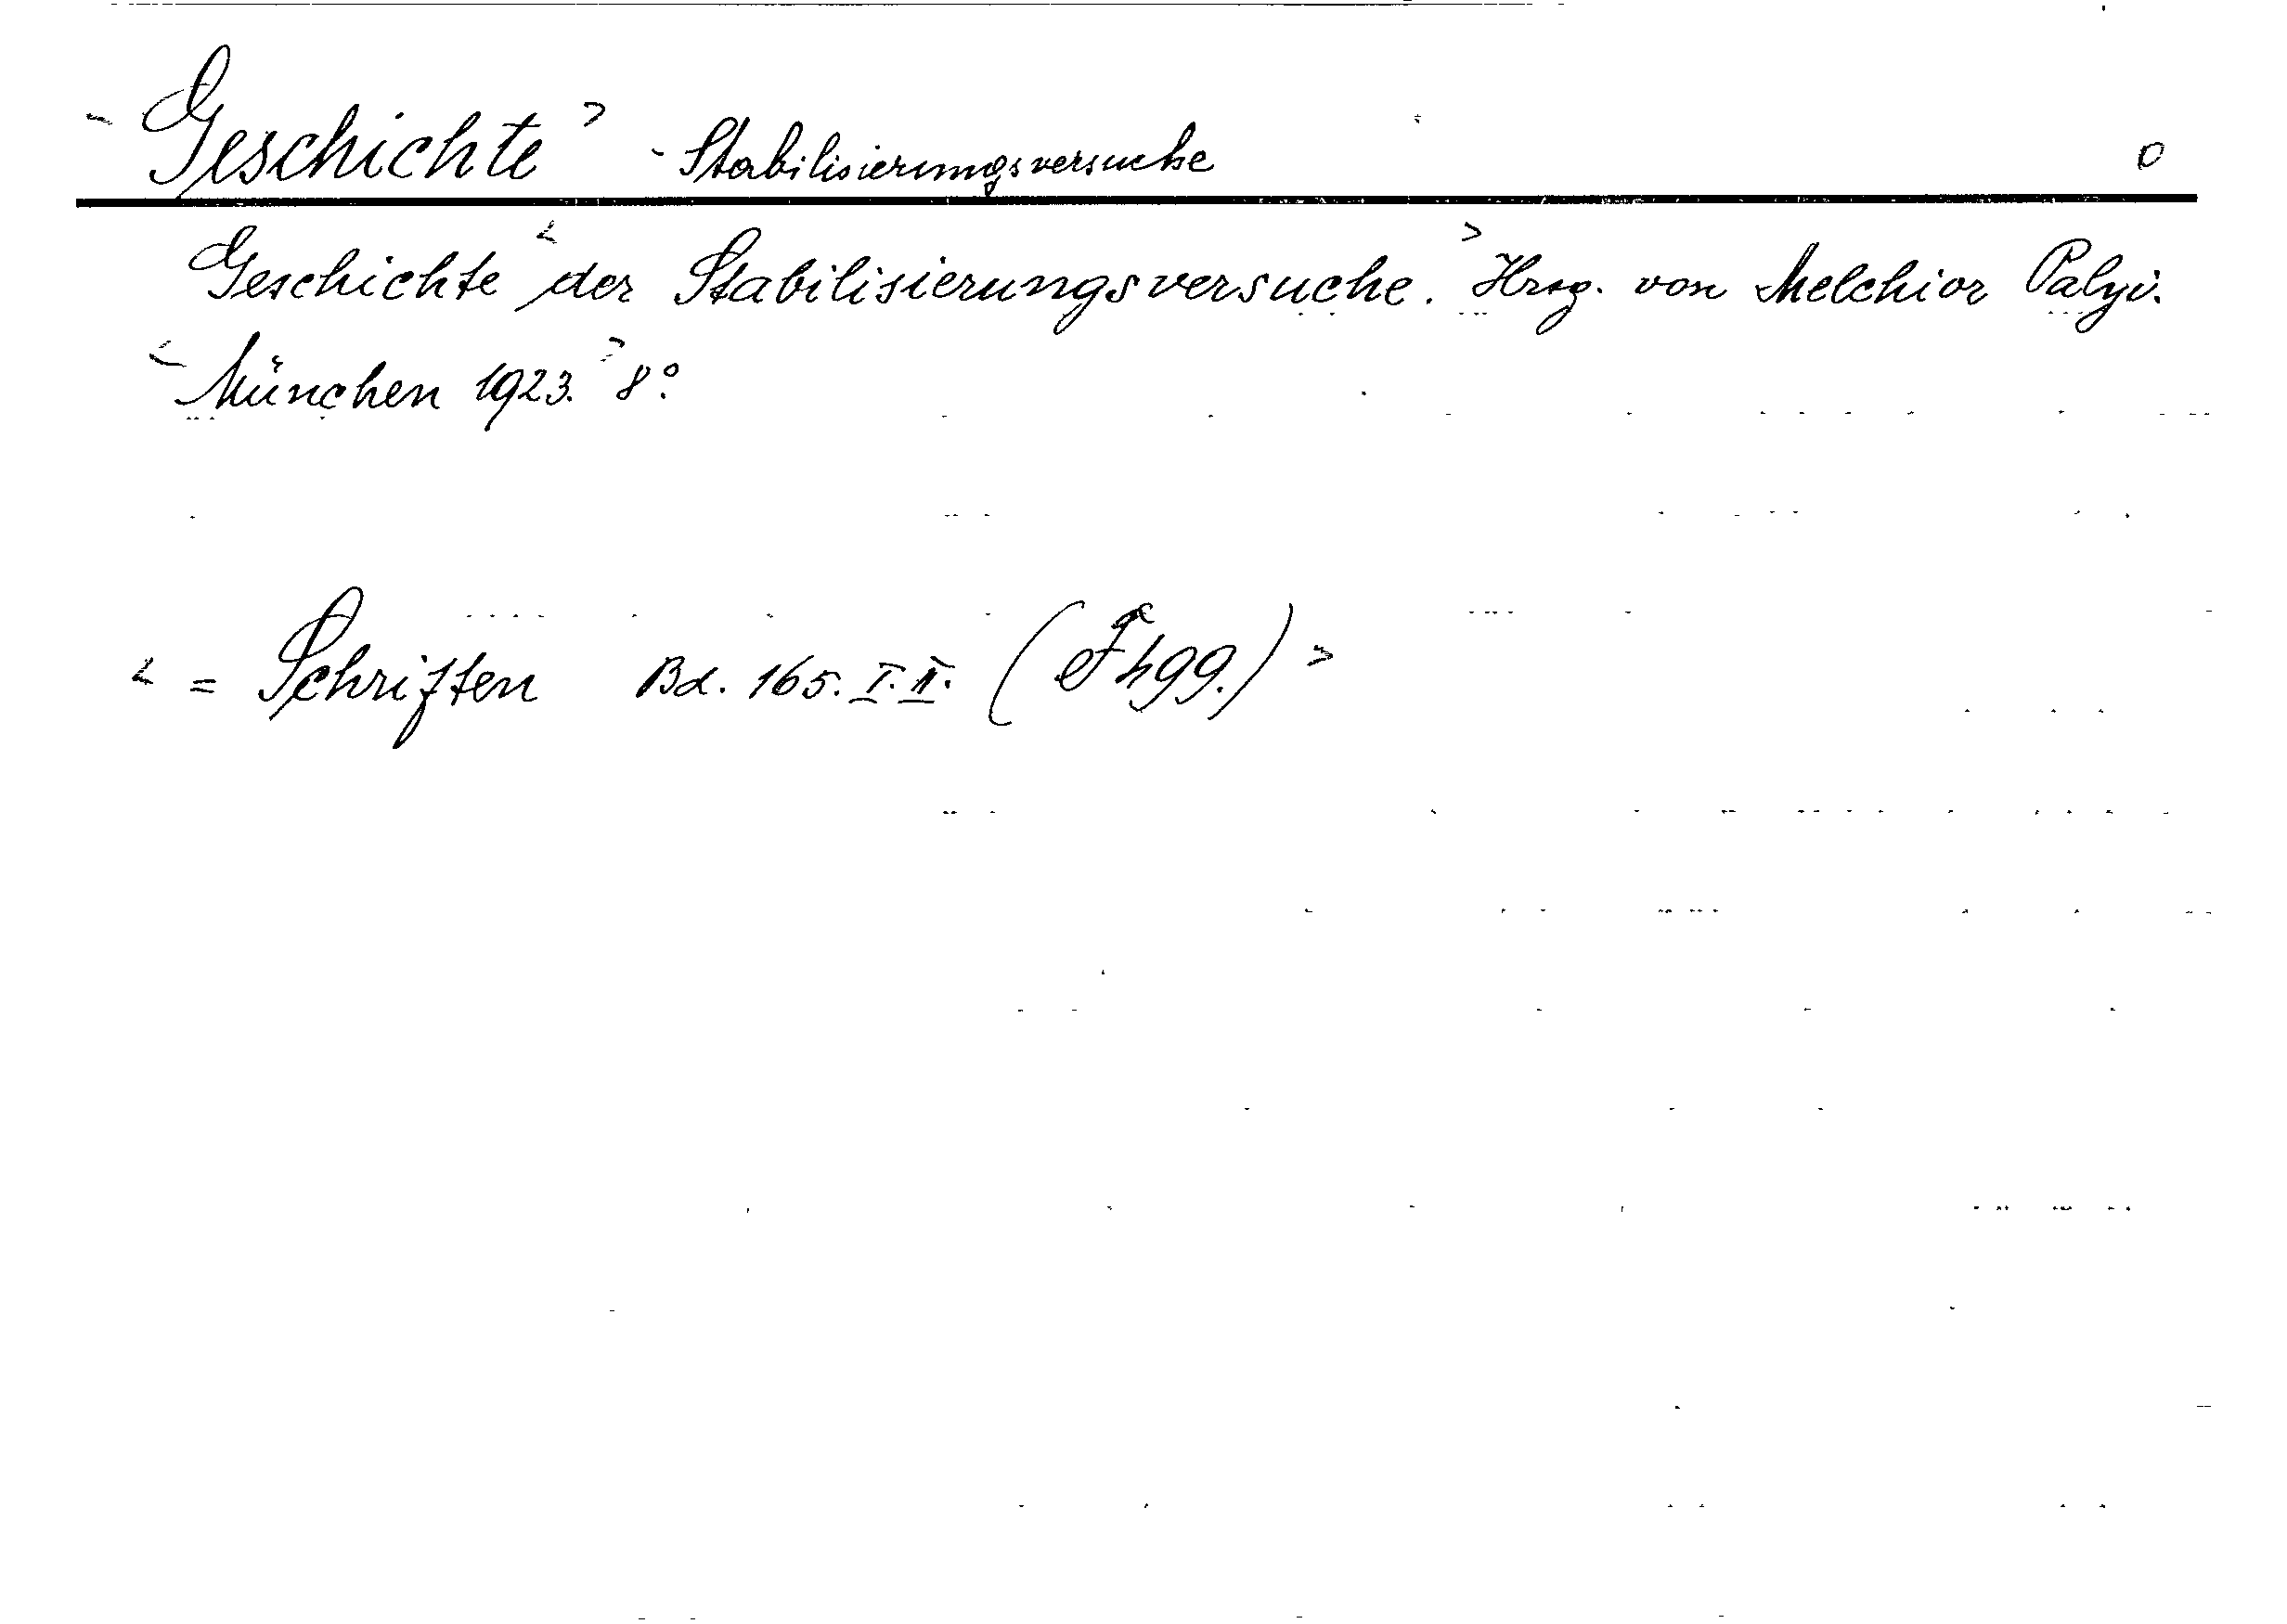 < Geschichte > - Stabilisierungsversuche 0
Geschichte < der Stabilisierungsversuche. > Hrsg. von Melchior Palyi.
< München 1923. > 8°.
< = Schriften Bd. 165. I. II. ( h99.) >